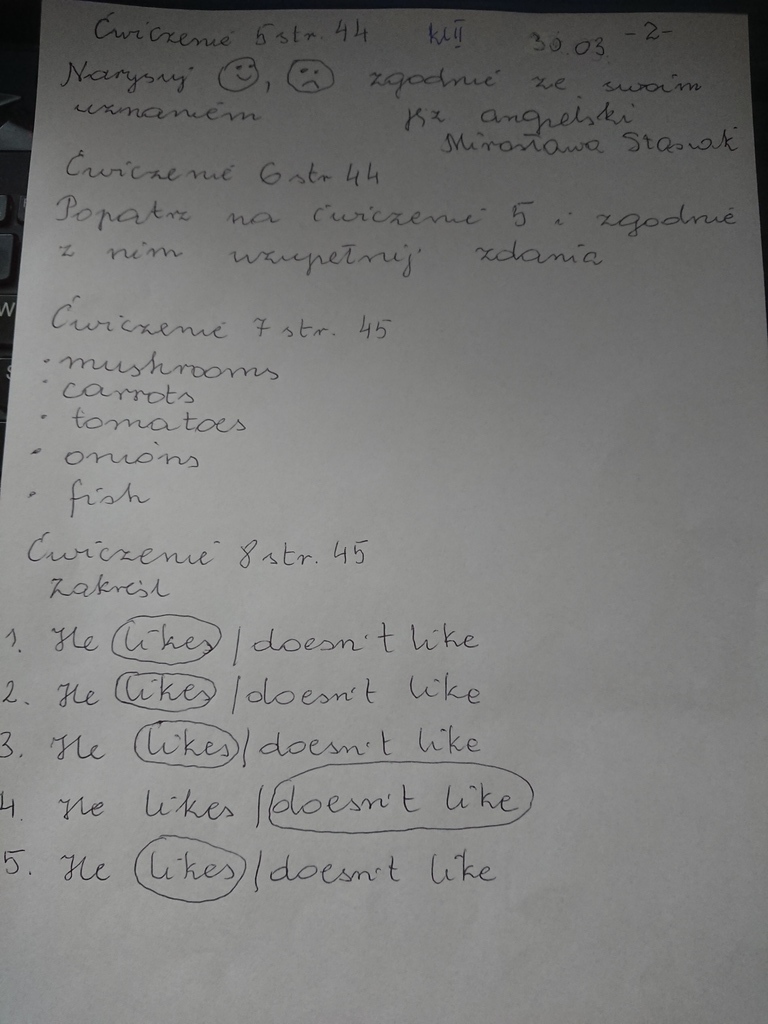 Ćwiczenie 5 str. 44 kl II 30.03 -2-
Narysuj 🙂, ☹ zgodnie ze swoim
uznaniem jęz angielski
Mirosława Stasiak
Ćwiczenie 6 str 44
Popatrz na ćwiczenie 5 i zgodnie
z nim uzupełnij zdania
Ćwiczenie 7 str. 45
• mushrooms
• carrots
• tomatoes
• onions
• fish
Ćwiczenie 8 str. 45
Zakreśl
1. He likes / doesn't like
2. He likes / doesn't like
3. He likes / doesn't like
4. He likes / doesn't like
5. He likes / doesn't like